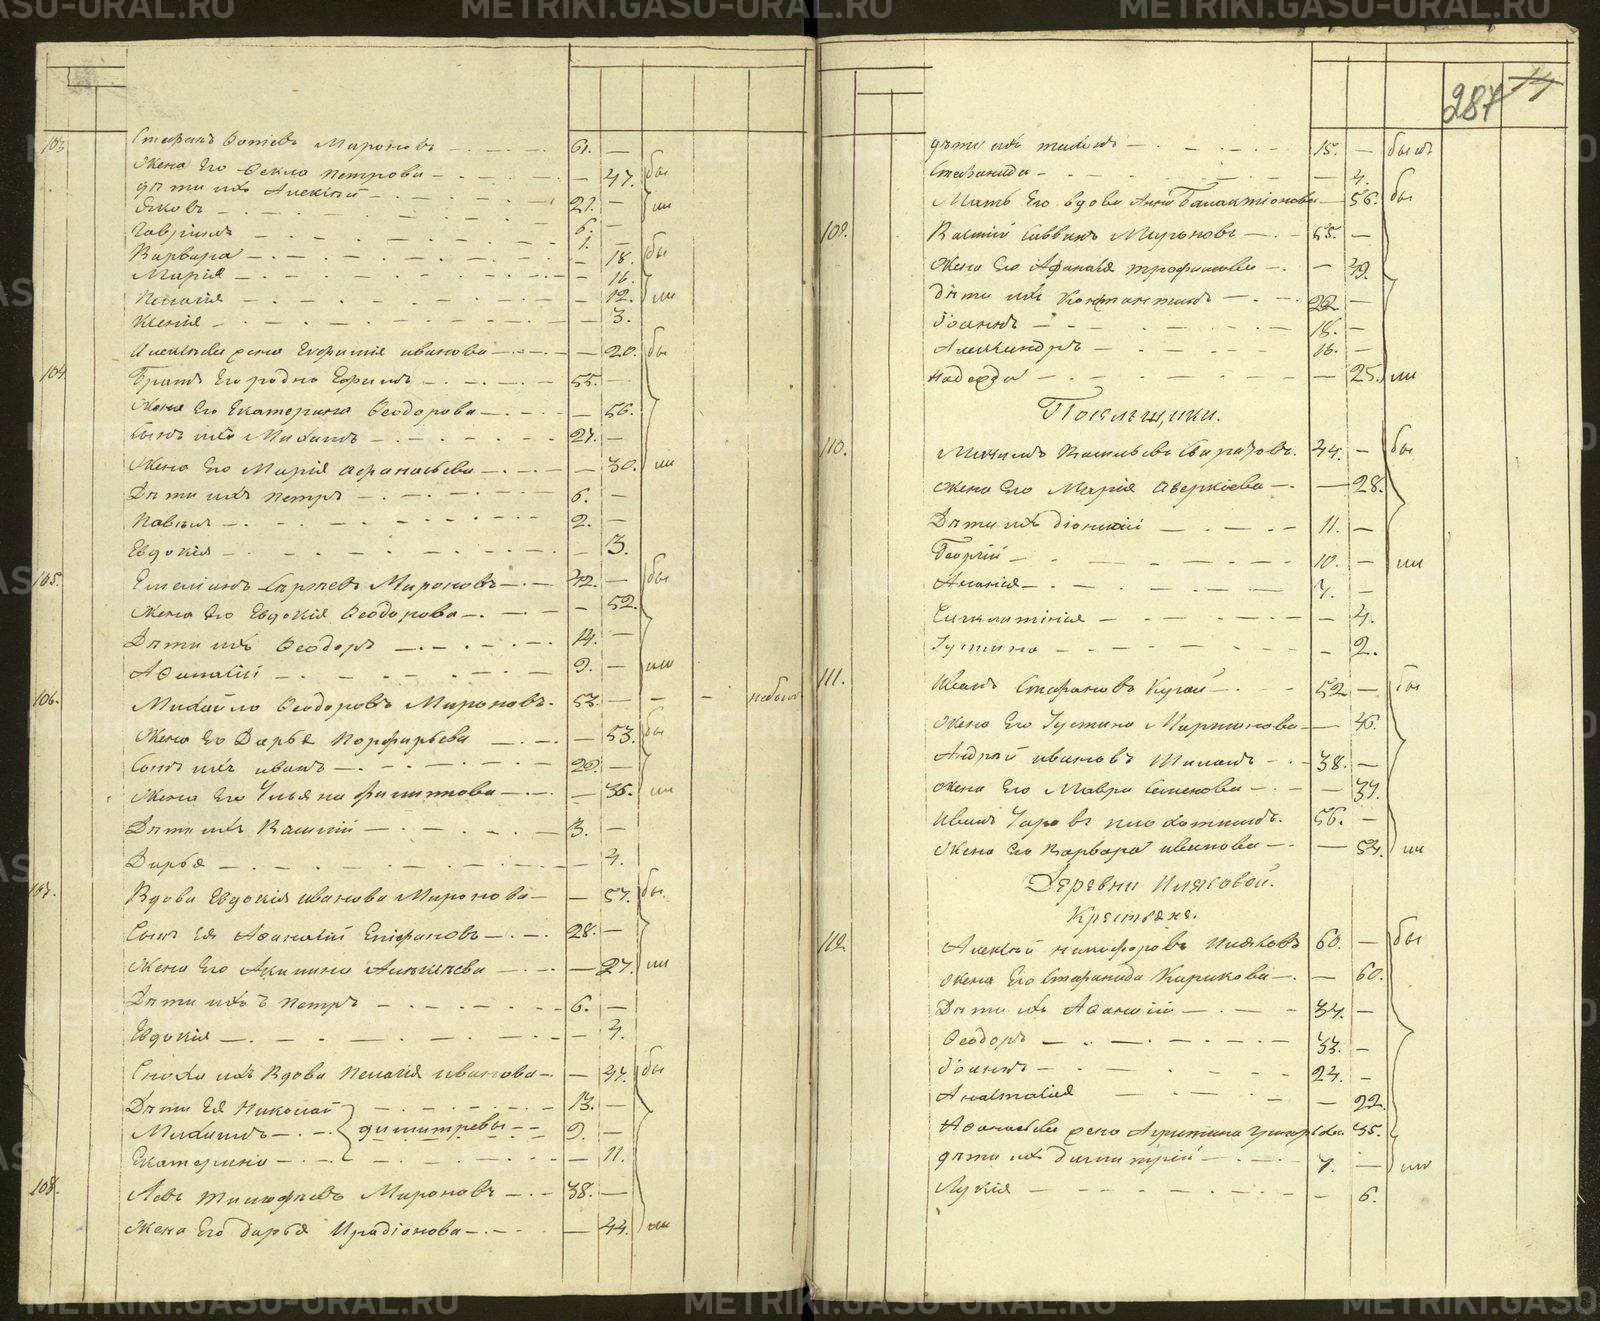 METRIKI.GASU-URAL.RU
287
103 Стефанъ Фотіевъ Мироновъ 61.
Жена Его Фекла Петрова 47. бы
дѣти ихъ Алексѣй 21. ли
Яковъ 6.
Гавріилъ 1.
Варвара 18. бы
Марія 16.
Пелагія 12. ли
Ксенія 3.
Алексѣева жена Евфимія иванова 20. бы
104 Братъ Его родно Ефимъ 55.
Жена Его Екатерина Феодорова 56.
Сынъ ихъ Михаилъ 27.
Жена Его Марія афанасьева 30. ли
Дѣти ихъ Петръ 6.
Павелъ 2.
Евдокія 3.
105. Емеліянъ Сергѣевъ Мироновъ 42. бы
Жена Его Евдокія Феодорова 52.
Дѣти ихъ Феодоръ 14.
Афанасій 9. ли
106. Михайло Феодоровъ Мироновъ. 53. небылъ
Жена Его Дарья Порфирьева 53. бы
Сынъ ихъ иванъ 20.
Жена Его Ульяна филиппова 35. ли
Дѣти ихъ Василій 3.
Дарья 4.
107. Вдова Евдокія иванова Миронова 57. бы
Сынъ Ея Афанасій Епифановъ 28.
Жена Его Акилина Алексѣева 27. ли
Дѣти ихъ Петръ 6.
Евдокія 4.
Сноха ихъ Вдова Пелагія иванова 47. бы
Дѣти Ея Николай 13.
Михаилъ димитревы 9.
Екатерина 11.
108. Левъ Тимофѣевъ Мироновъ 38.
Жена Его Дарья Иродіонова 44. ли
дѣти ихъ 15. былъ
Степанида 4.
Мать Его вдова Анна Галактіонова 56. бы
109. Василій Саввинъ Мироновъ 55.
Жена Его Афанасія трофимова 39.
Дѣти ихъ Константинъ 22
Іоаннъ 18.
Александръ 16.
Надежда 25. ли
Посельщики.
110. Михаилъ Васильевъ 44. бы
Жена Его Марія Аверкіева 28.
Дѣти ихъ Діонисій 11.
Георгій 10. ли
Ананія 7.
4.
Іустина 2.
111. Иванъ Стефановъ 52 бы
Жена Его Іустина Мартинова 46.
Андрей ивановъ 38.
Жена Его Мавра Семенова 37.
Иванъ 56.
Жена Его Варвара иванова 54. ли
Деревни Иляковой.
Крестьяне.
112 Алексѣй никифоровъ Иляковъ 60. бы
Жена Его Стефанида Кирикова 60.
Дѣти ихъ Афанасій 34.
Феодоръ 33.
Іоаннъ 24.
Анастасія 22.
Афанасьева жена Агрипина Григорьева 35.
дѣти ихъ Димитрій 7. ли
Лукія 6.